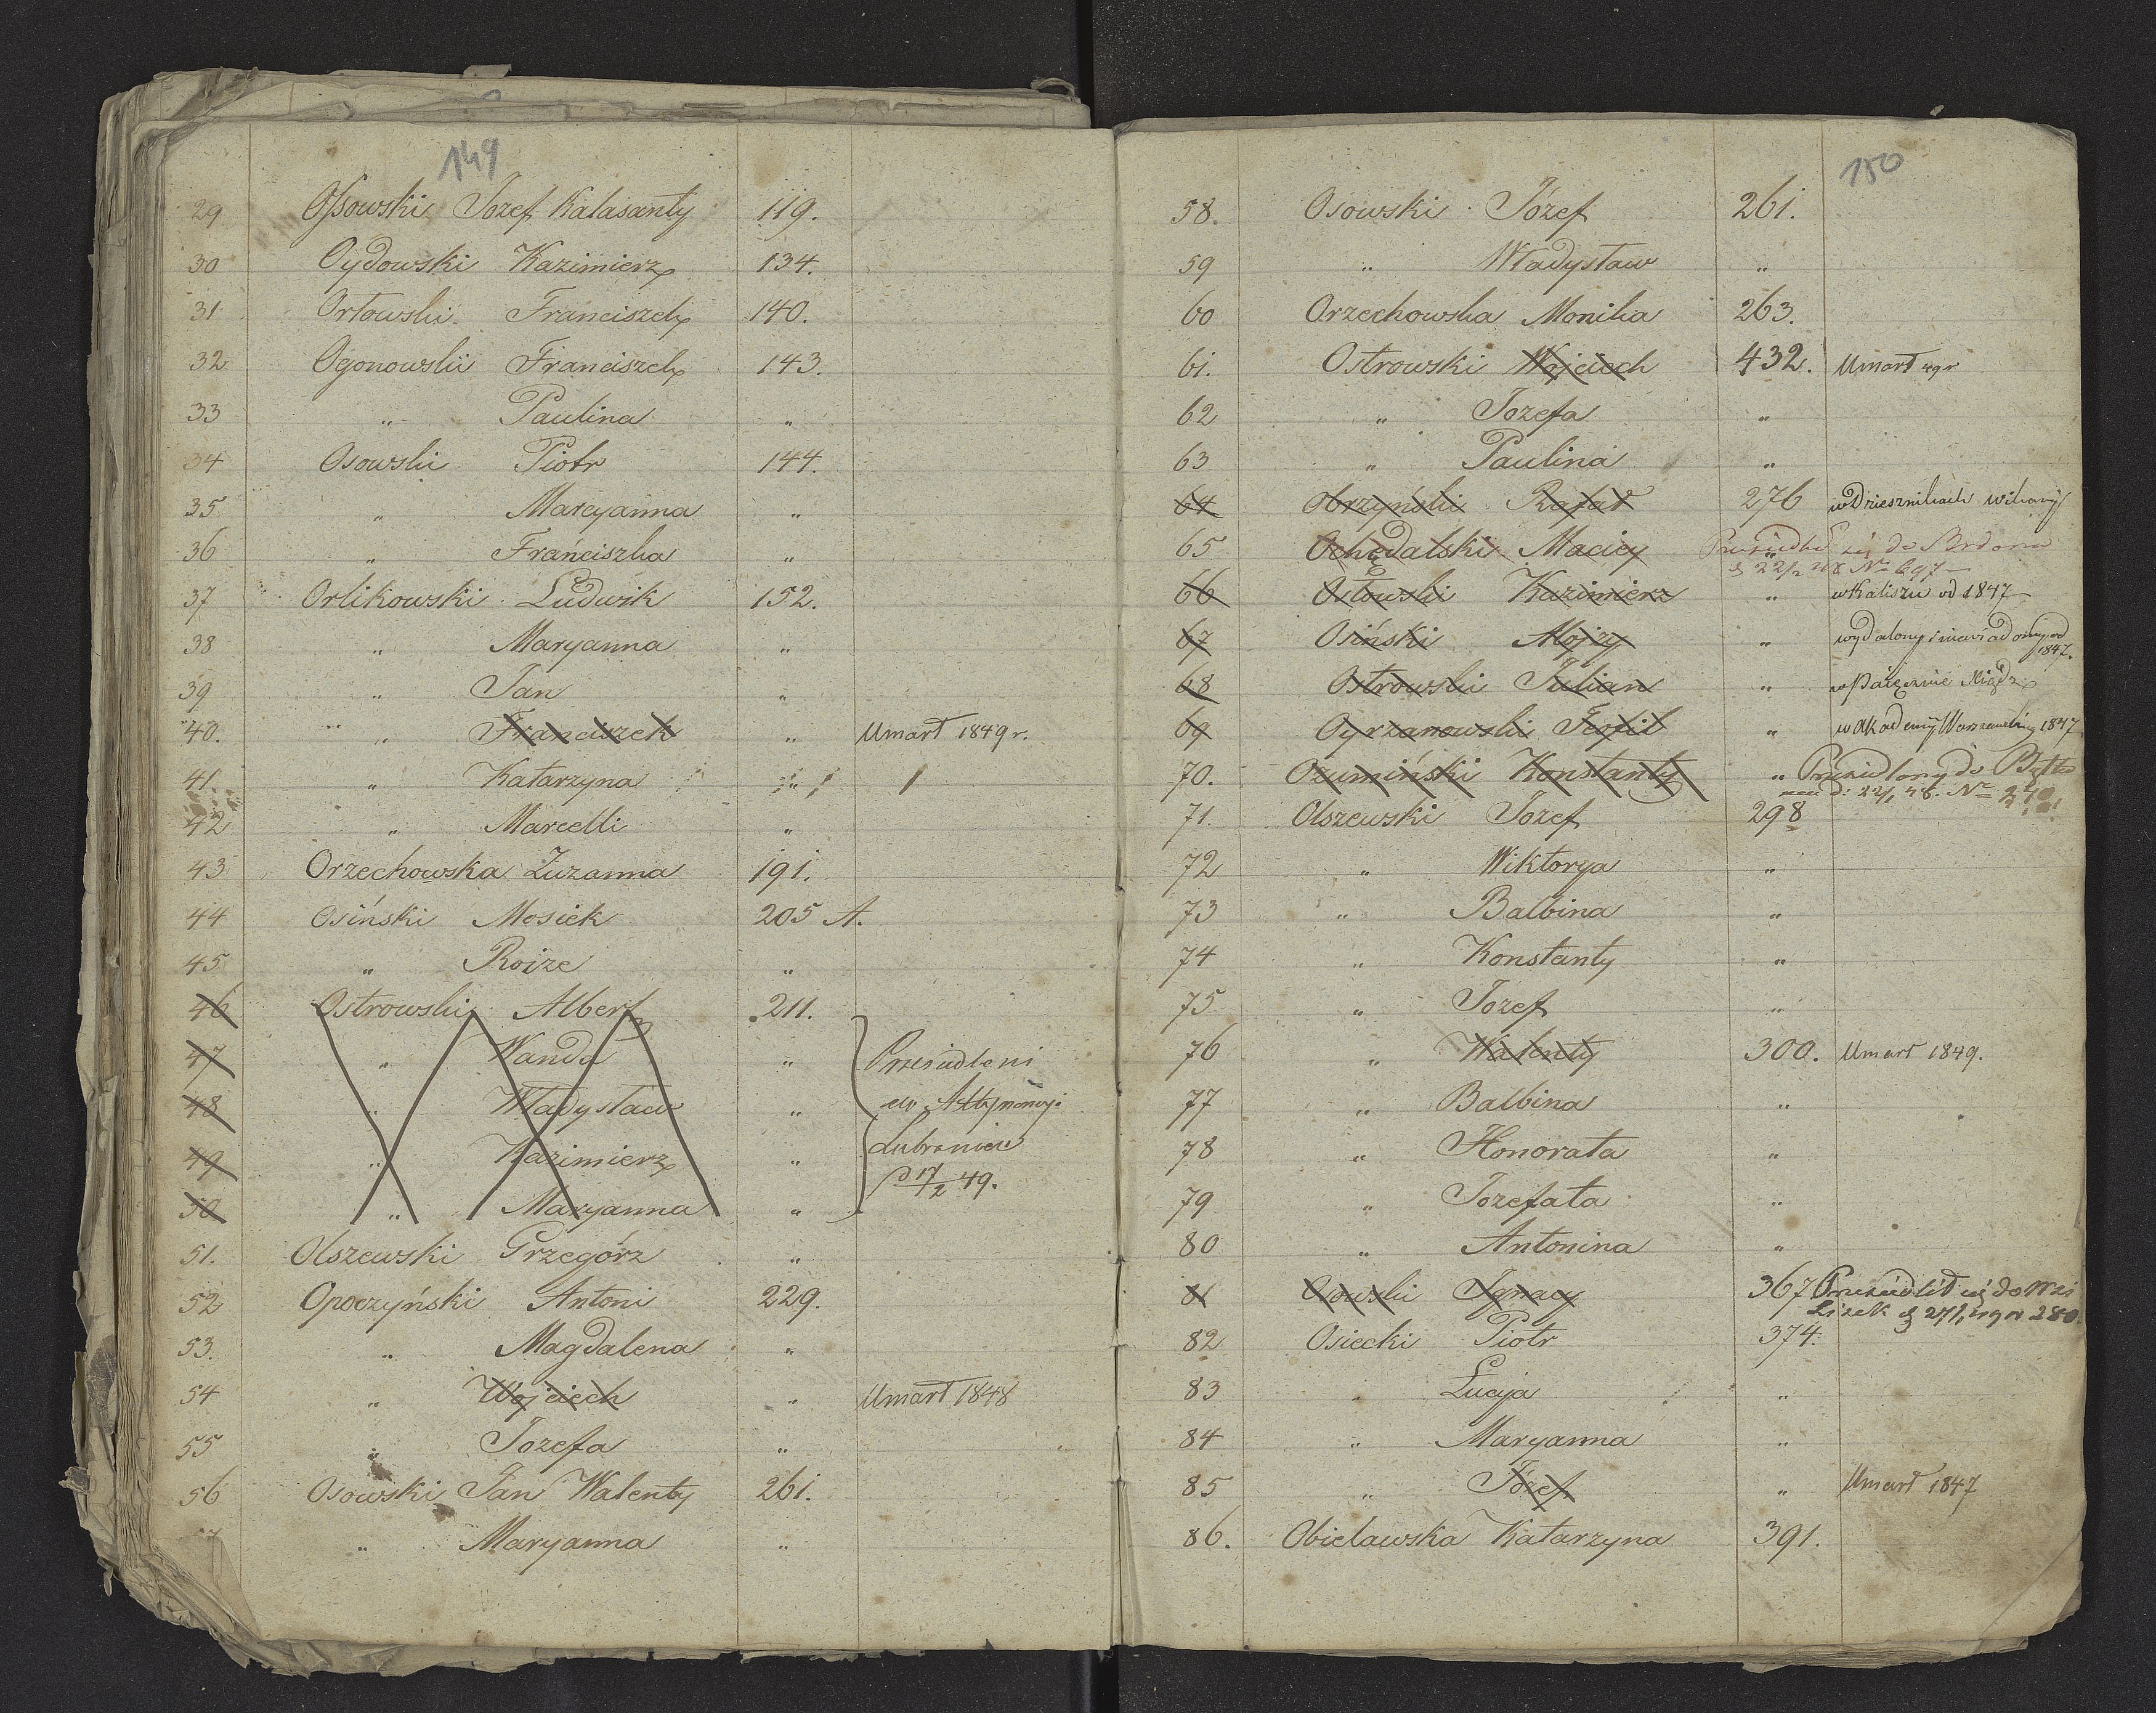 149
29 Ossowski Jozef Kalasanty 119.
30 Oydowski Kazimierz 134.
31 Orłowski Franciszek 140.
32 Ogonowski Franciszek 143.
33 " Paulina "
34 Osowski Piotr 144.
35 " Maryanna "
36 " Franciszka "
37 Orlikowski Ludwik 152.
38 " Maryanna "
39 " Jan "
40. " Franciszek " Umarł 1849 r.
41. " Katarzyna "
42 " Marcelli "
43 Orzechowska Zuzanna 191.
44 Osiński Mosiek 205 A.
45 " Roize "
46 Ostrowski Albert 211.
47 " Wanda " Przesiedleni
48 " Władysław "
49 " Kazimierz " Lubraniec
50 " Maryanna " d 17/2 49.
51. Olszewski Grzegórz "
52 Opoczyński Antoni 229.
53. " Magdalena "
54 " Wojciech " Umarł 1848
55 " Jozefa "
56 Osowski Jan Walenty 261.
" Maryanna "
150
58. Osowski Józef 261.
59 " Władysław "
60 Orzechowska Monika 263.
61. Ostrowski Wojciech 432. Umarł 49 r
62 " Jozefa "
63 " Paulina "
64 Obrzyński Rafał 276
65 Ochędalski Maciey " się do
d 22/2 48 No 697
66 Osłowski Kazimierz " w Kaliszu od 1847
67 Osiński Mojzy " wydalony i niewiadomy od
1847.
68 Ostrowski Julian "
69 Oyrzanowski Teofil " w Akademij Warszawskiej 1847
70. Ozumiński Konstanty " Przesiedlony do
d: 22/1 48. No 240.
71. Olszewski Jozef 298
72 " Wiktorya "
73 " Balbina "
74 " Konstanty "
75 " Jozef "
76 " Walenty 300. Umarł 1849.
77 " Balbina "
78 " Honorata "
79 " Jozefata "
80 " Antonina "
81 Osowski Ignacy 367 Przesiedlił się do Wsi
d 27/1 49 N 280
82 Osiecki Piotr 374.
83 " Lucyja "
84 " Maryanna "
85 " Józef " Umarł 1847
86. Obielawska Katarzyna 391.